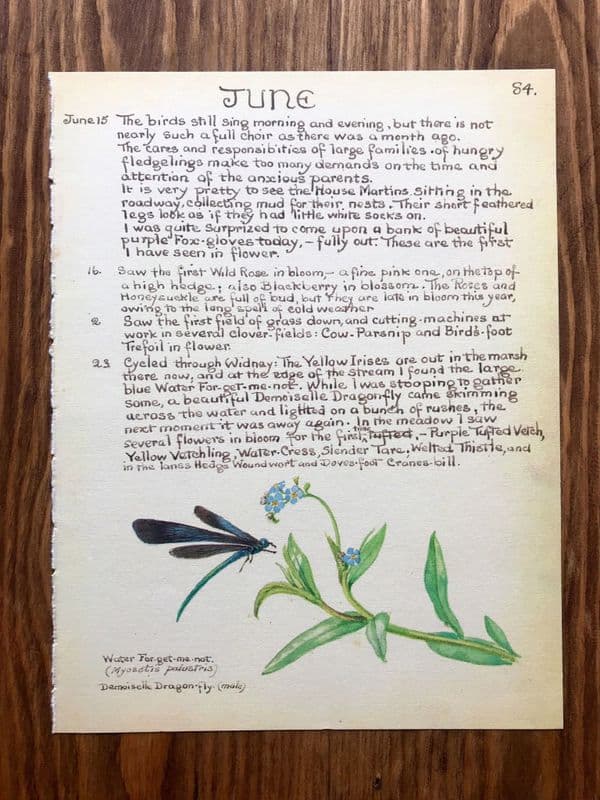 JUNE
84.
June 15 The birds still sing morning and evening, but there is not
nearly such a full choir as there was a month ago.
The cares and responsibities of large families of hungry
fledgelings make too many demands on the time and
attention of the anxious parents.
It is very pretty to see the House Martins sitting in the
roadway, collecting mud for their nests. Their short feathered
legs look as if they had little white socks on.
I was quite surprized to come upon a bank of beautiful
purple Fox-gloves today, – fully out. These are the first
I have seen in flower.
16. Saw the first Wild Rose in bloom, – a fine pink one, on the top of
a high hedge; also Blackberry in blossom. The Roses and
Honeysuckle are full of bud, but they are late in bloom this year,
owing to the long spell of cold weather
2 Saw the first field of grass down, and cutting-machines at
work in several clover-fields: Cow-Parsnip and Bird's-foot
Trefoil in flower.
23 Cycled through Widney: The Yellow Irises are out in the marsh
there now, and at the edge of the stream I found the large
blue Water For-get-me-not. While I was stooping to gather
some, a beautiful Demoiselle Dragonfly came skimming
across the water and lighted on a bunch of rushes, the
next moment it was away again. In the meadow I saw
several flowers in bloom for the first time, Tufted, – Purple Tufted Vetch,
Yellow Vetchling, Water-Cress, Slender Tare, Welted Thistle, and
in the lanes Hedge Woundwort and Doves-foot Cranes-bill.
Water For-get-me-not.
(Myosotis palustris)
Demoiselle Dragon-fly. (male)